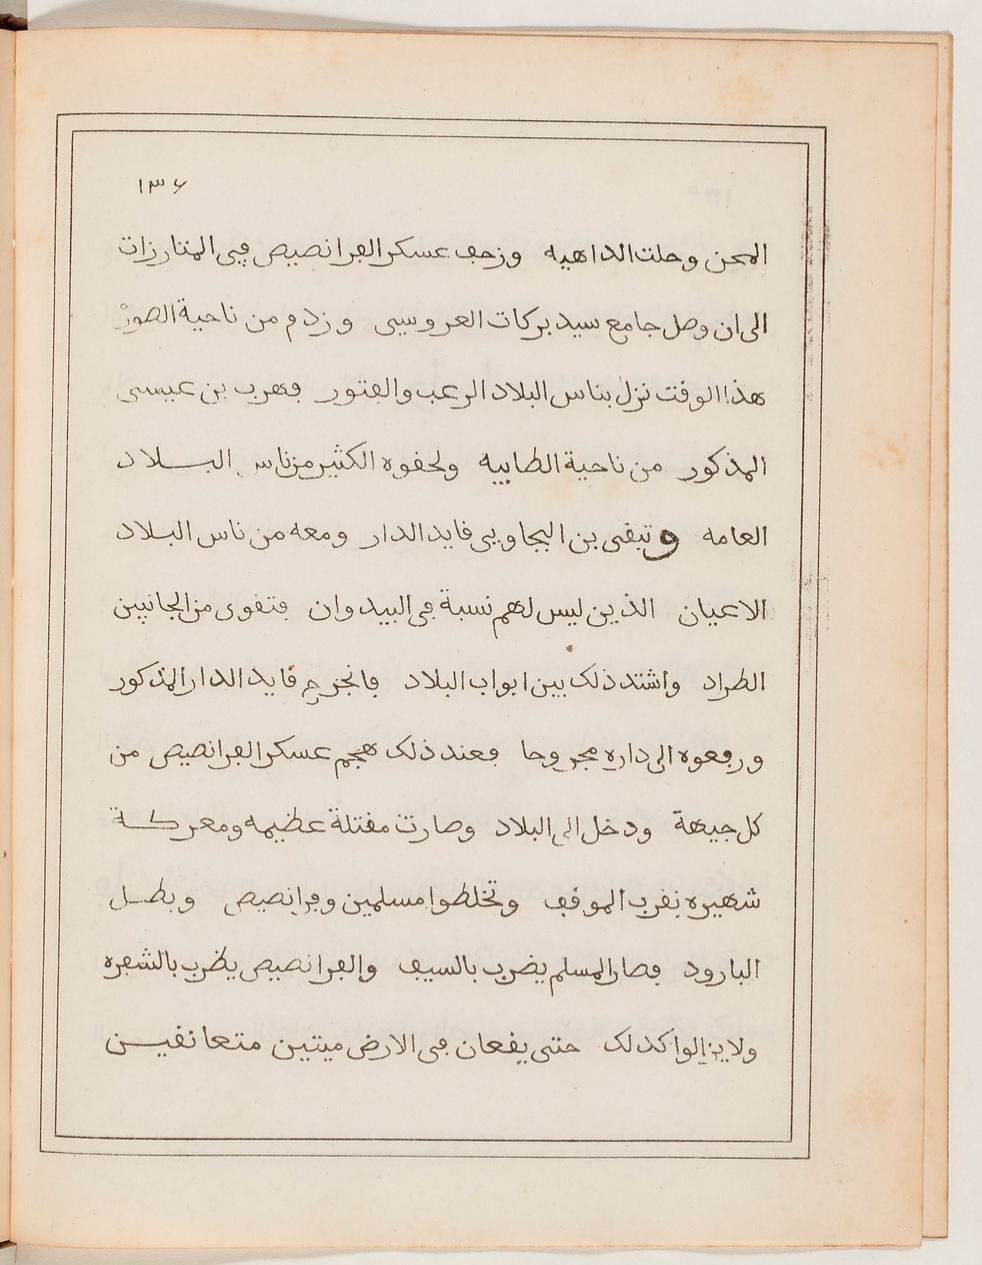 ١٣٦
المحن وحلت الداهيه وزحف عسكر الفرانصيص في المتارزات
الى ان وصل جامع سيد بركات العروسي وزدم من ناحية الصور
هذا الوقت نزل بناس البلاد الرعب والفتور فهرب بن عيسى
المذكور من ناحية الطابيه ولحقوه الكثير من ناس البلاد
العامه وتبقى بن البجاوي قايد الدار ومعه من ناس البلاد
الاعيان الذين ليس لهم نسبة في البيدوان فتقوى من الجانبين
الطراد واشتد ذلك بين ابواب البلاد فانجرح قايد الدار المذكور
ورفعوه الى داره مجروحا فعند ذلك هجم عسكر الفرانصيص من
كل جيهة ودخل الى البلاد وصارت مقتلة عظيمه ومعركة
شهيره بقرب الموقف وتخلطوا مسلمين وفرانصيص وبطل
البارود فصار المسلم يضرب بالسيف والفرانصيص يظرب بالشفره
ولا يزالوا كدلك حتى يقعان في الارض ميتين متعانقين